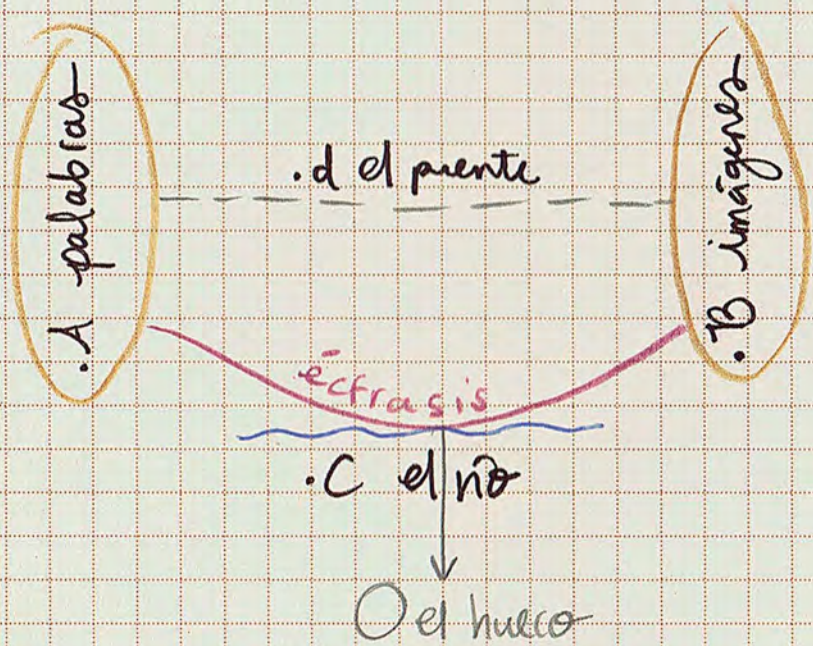 .A palabras
.d el puente
.B imágenes
écfrasis
.C el río
O el hueco